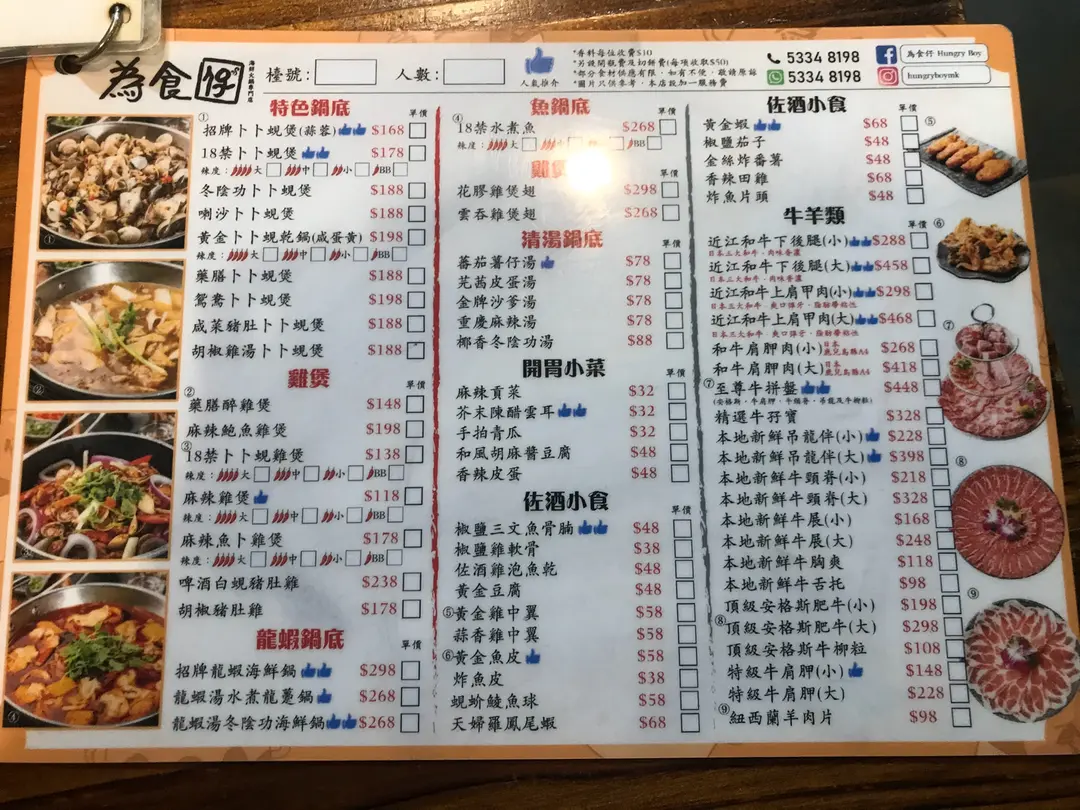 為食仔
海鮮火鍋專門店
檯號：
人數：
人氣推介
*香料每位收費$10
*另設開瓶費及切餅費(每項收取$50)
*部分食材供應有限，如有不便，敬請原諒
*圖片只供參考，本店設加一服務費
5334 8198
5334 8198
為食仔 Hungry Boy
hungryboymk
特色鍋底 單價
①
招牌卜卜蜆煲(蒜蓉) $168
18禁卜卜蜆煲 $178
辣度： 大 中 小 BB
冬陰功卜卜蜆煲 $188
喇沙卜卜蜆煲 $188
黃金卜卜蜆乾鍋(咸蛋黃) $198
辣度： 大 中 小 BB
藥膳卜卜蜆煲 $188
鴛鴦卜卜蜆煲 $198
咸菜豬肚卜卜蜆煲 $188
胡椒雞湯卜卜蜆煲 $188
雞煲 單價
②
藥膳醉雞煲 $148
麻辣鮑魚雞煲 $198
③
18禁卜卜蜆雞煲 $138
辣度： 大 中 小 BB
麻辣雞煲 $118
辣度： 大 中 小 BB
麻辣魚卜雞煲 $178
辣度： 大 中 小 BB
啤酒白蜆豬肚雞 $238
胡椒豬肚雞 $178
龍蝦鍋底 單價
招牌龍蝦海鮮鍋 $298
龍蝦湯水煮龍躉鍋 $268
龍蝦湯冬陰功海鮮鍋 $268
魚鍋底 單價
④
18禁水煮魚 $268
辣度： 大 小 BB
雞煲 單價
花膠雞煲翅 $298
雲吞雞煲翅 $268
清湯鍋底 單價
蕃茄薯仔湯 $78
芫茜皮蛋湯 $78
金牌沙爹湯 $78
重慶麻辣湯 $78
椰香冬陰功湯 $88
開胃小菜 單價
麻辣貢菜 $32
芥末陳醋雲耳 $32
手拍青瓜 $32
和風胡麻醬豆腐 $48
香辣皮蛋 $48
佐酒小食 單價
椒鹽三文魚骨腩 $48
椒鹽雞軟骨 $38
佐酒雞泡魚乾 $48
黃金豆腐 $48
⑤黃金雞中翼 $58
蒜香雞中翼 $58
⑥黃金魚皮 $58
炸魚皮 $38
蜆蚧鯪魚球 $58
天婦羅鳳尾蝦 $68
佐酒小食 單價
黃金蝦 $68
椒鹽茄子 $48
金絲炸番薯 $48
香辣田雞 $68
炸魚片頭 $48
牛羊類 單價
近江和牛下後腿(小) $288
日本三大和牛，肉味香濃
近江和牛下後腿(大) $458
日本三大和牛，肉味香濃
近江和牛上肩甲肉(小) $298
日本三大和牛，爽口彈牙，脂齡帶粘性
近江和牛上肩甲肉(大) $468
日本三大和牛，爽口彈牙，脂齡帶粘性
和牛肩胛肉(小)日本鹿兒島縣A4 $268
和牛肩胛肉(大)日本鹿兒島縣A4 $418
⑦至尊牛拼盤 $448
(安格斯，牛肩胛，牛頸脊，吊龍及牛柳粒)
精選牛孖寶 $328
本地新鮮吊龍伴(小) $228
本地新鮮吊龍伴(大) $398
本地新鮮牛頸脊(小) $218
本地新鮮牛頸脊(大) $328
本地新鮮牛展(小) $168
本地新鮮牛展(大) $248
本地新鮮牛胸爽 $118
本地新鮮牛舌托 $98
頂級安格斯肥牛(小) $198
⑧頂級安格斯肥牛(大) $298
頂級安格斯牛柳粒 $108
特級牛肩胛(小) $148
特級牛肩胛(大) $228
⑨紐西蘭羊肉片 $98
①
②
③
④
⑤
⑥
⑦
⑧
⑨